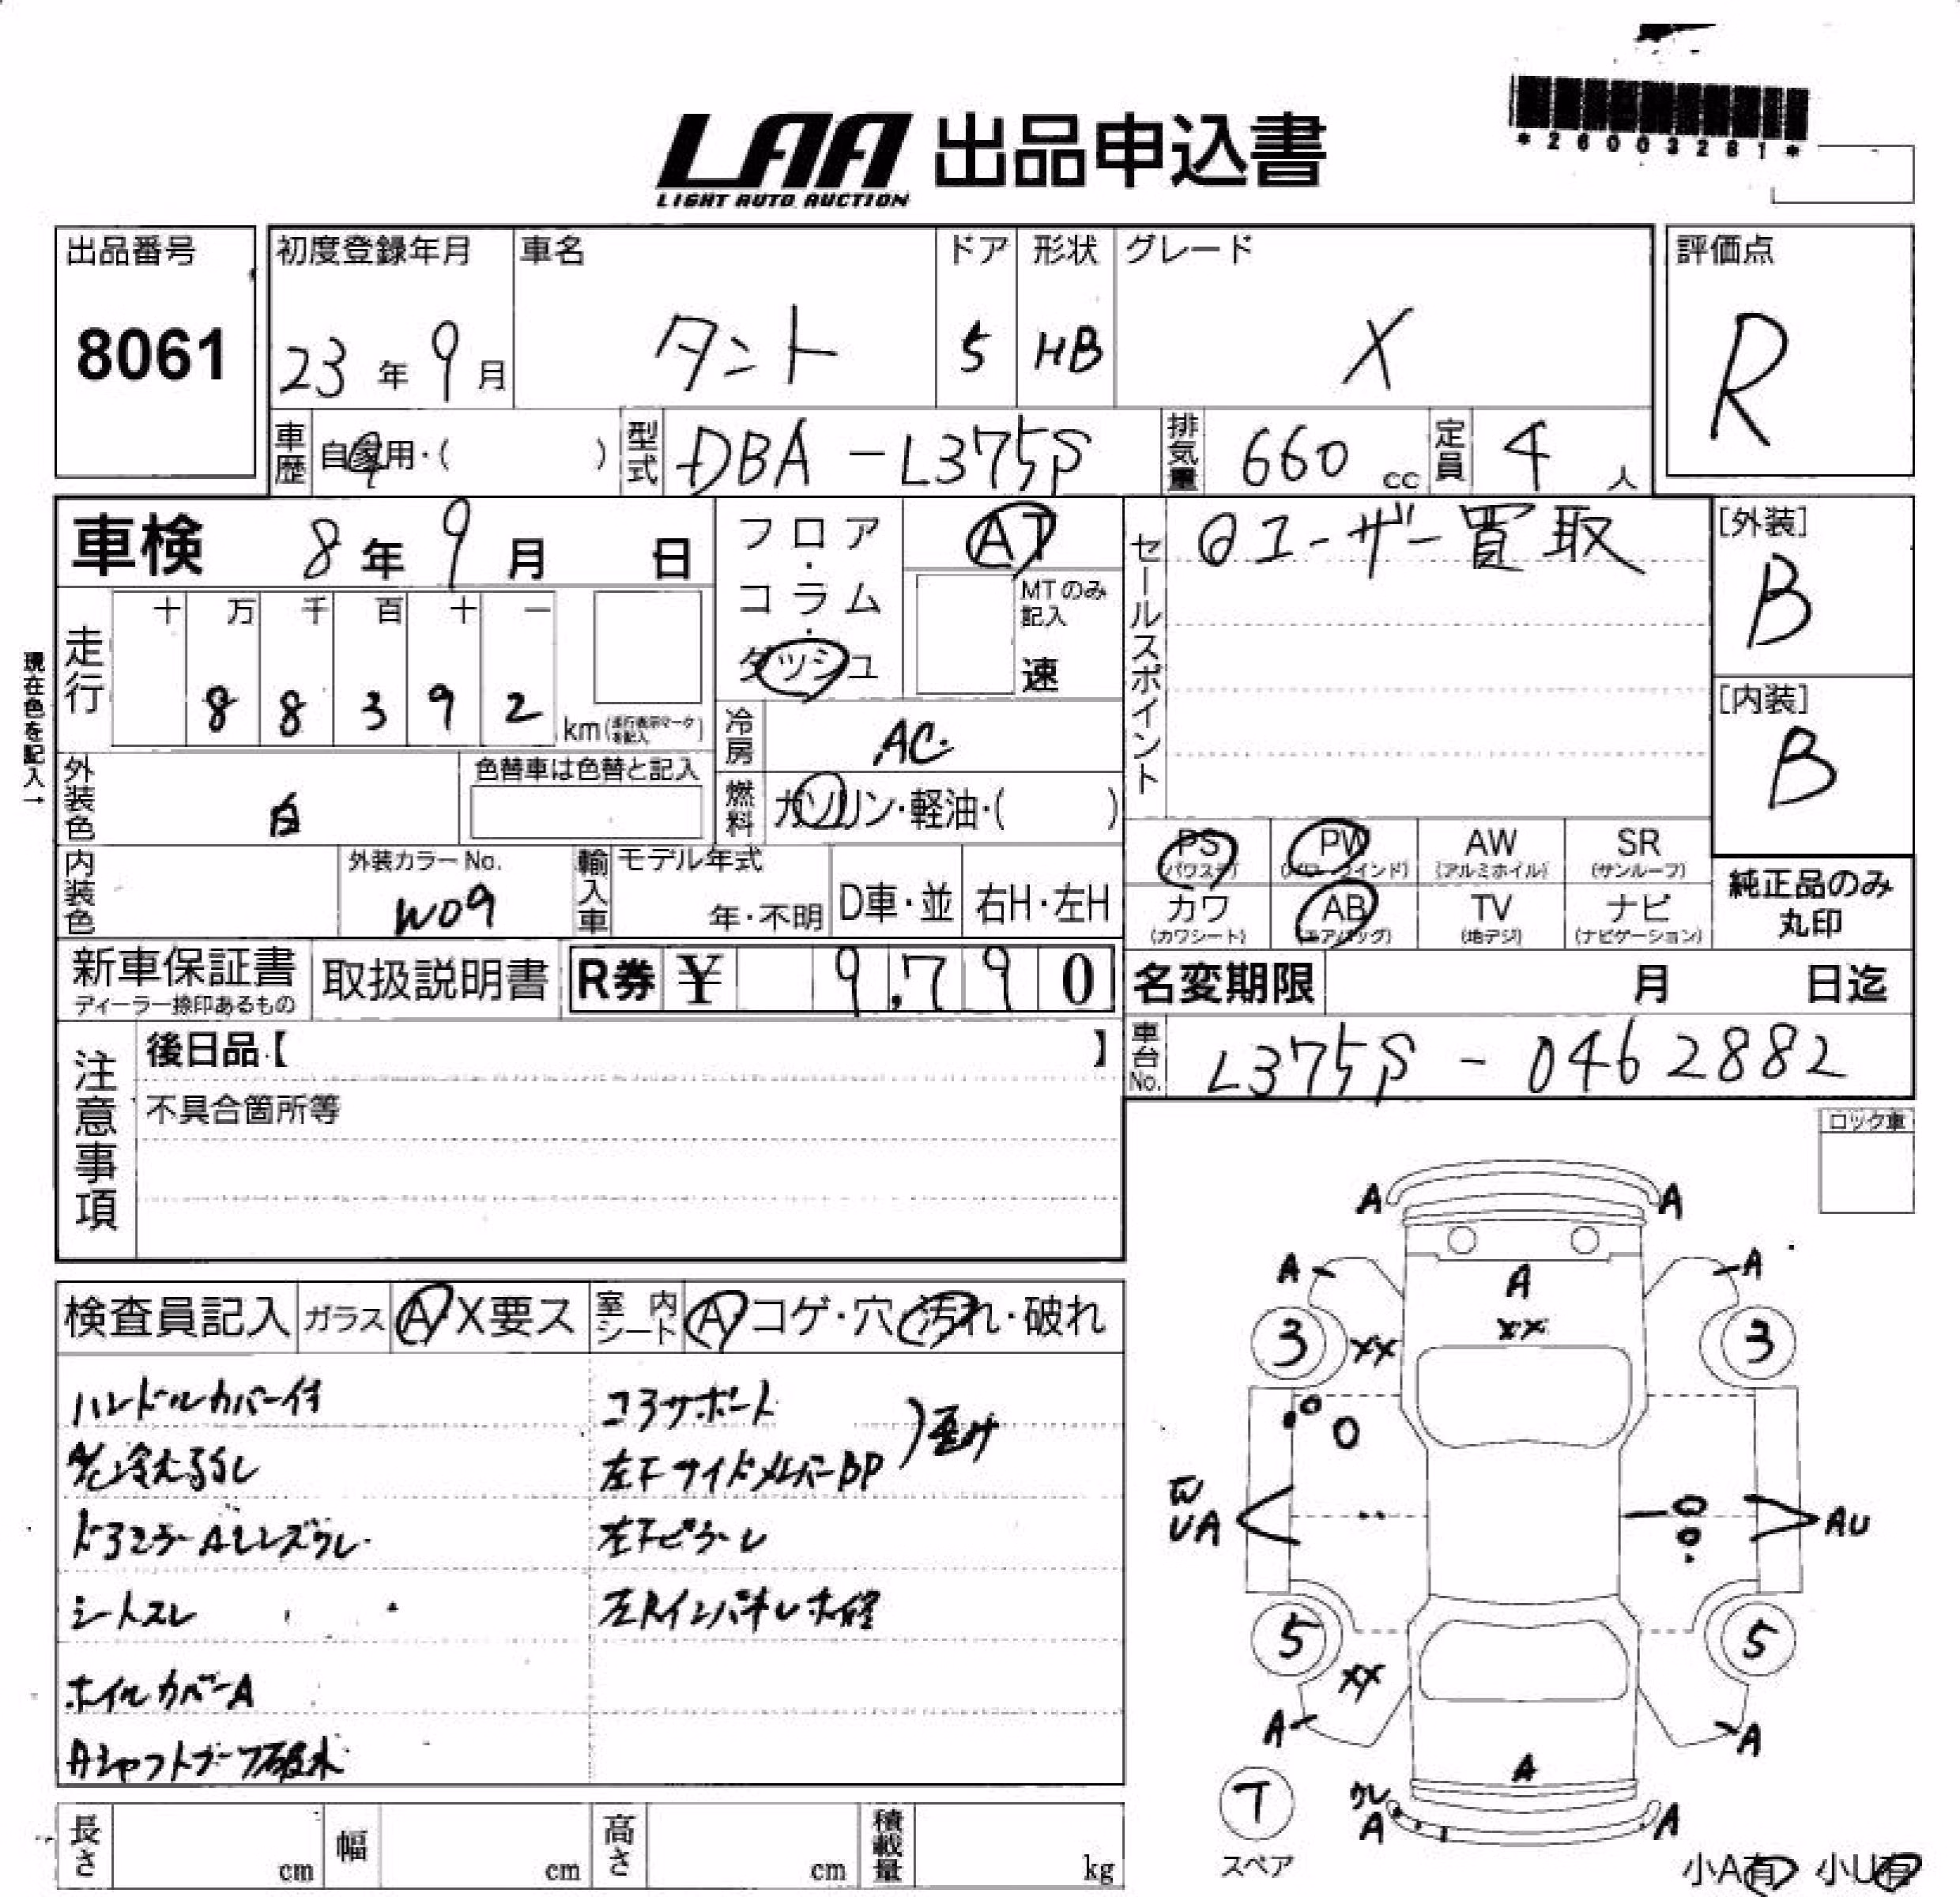 *26003281*
LAA 出品申込書
LIGHT AUTO AUCTION
出品番号
8061
初度登録年月
23年9月
車名
タント
ドア
5
形状
HB
グレード
X
評価点
R
車歴
自家用・( )
型式
DBA-L375S
排気量
660 cc
定員
4 人
車検 8年9月 日
フロア・コラム・ダッシュ
AT
MTのみ記入
速
セールスポイント
ユーザー買取
[外装]
B
[内装]
B
現在色を記入→
走行
十 万 千 百 十 一
8 8 3 9 2
km (走行表示マークを記入)
冷房
AC
燃料
ガソリン・軽油・( )
外装色
白
色替車は色替と記入
内装色
外装カラーNo.
W09
輸入車
モデル年式
年・不明
D車・並
右H・左H
PS (パワステ)
PW
AW (アルミホイル)
SR (サンルーフ)
カワ (カワシート)
AB (エアバッグ)
TV (地デジ)
ナビ (ナビゲーション)
純正品のみ丸印
新車保証書
ディーラー捺印あるもの
取扱説明書
R券 ¥ 9,790
名変期限 月 日迄
車台No.
L375S-0462882
注意事項
後日品【 】
不具合箇所等
ロック車
検査員記入
ガラス A・X要ス
室内シート A・コゲ・穴・汚れ・破れ
ハンドルカバー付
シートスレ
ホイルカバーA
コアサポート
左Fサイドメンバー
左Fピラー
A A
A A
A
XX
3 XX 3
UA AU
5 5
XX
A A
A
T
スペア
A A
小A有 小U有
長さ cm
幅 cm
高さ cm
積載量 kg